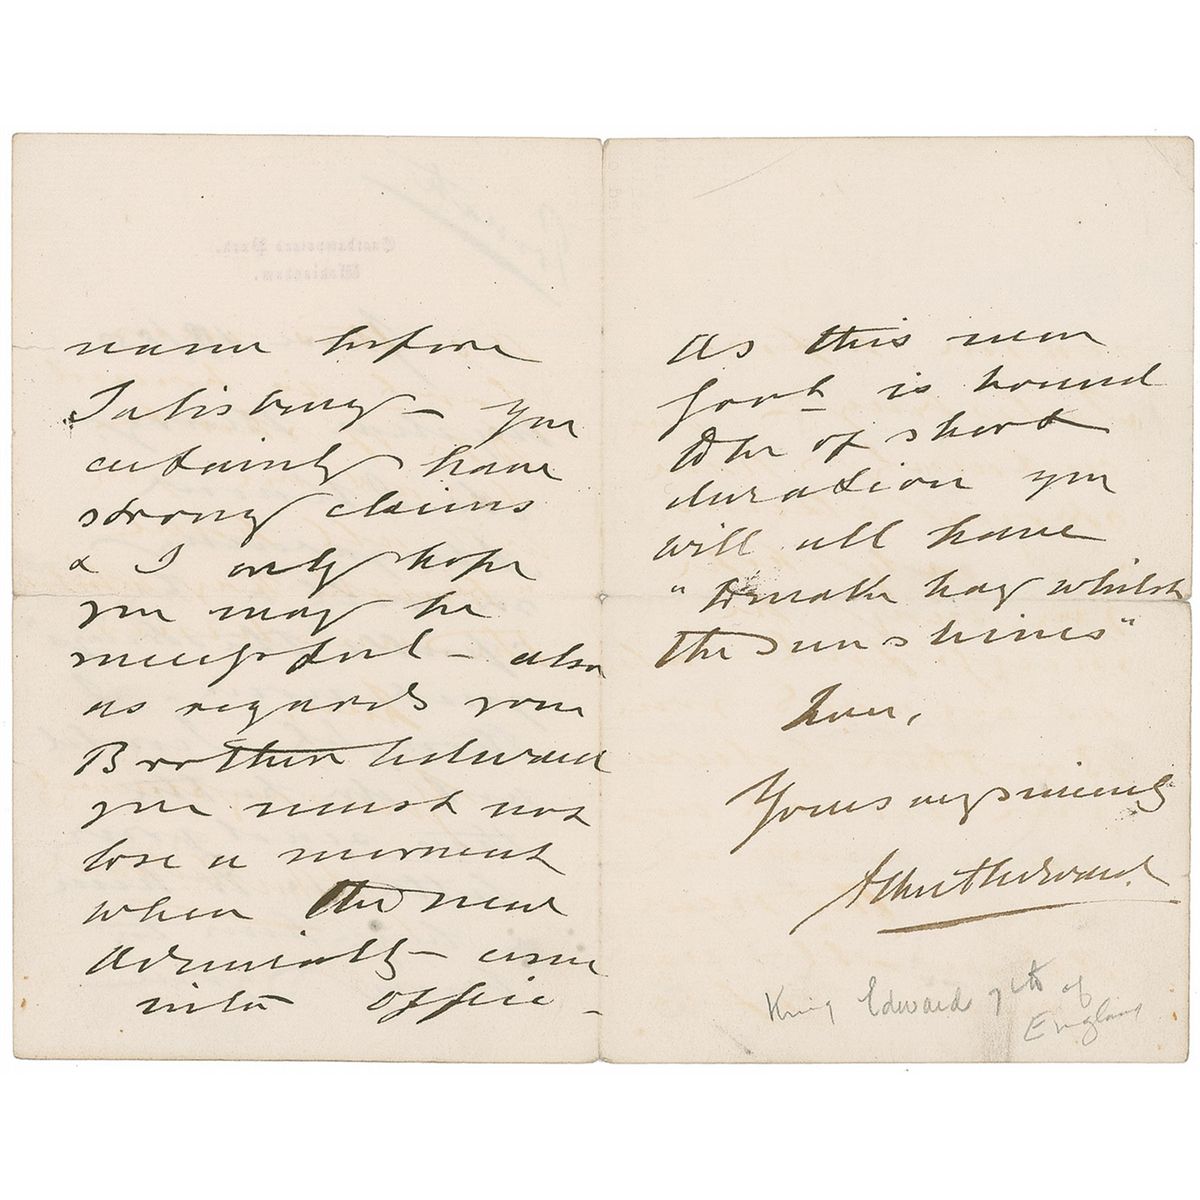 name before
Salisbury – You
certainly have
strong claims
& I only hope
you may be
successful – also
as regards your
Brother Edward
you must not
lose a moment
when the new
Admiralty – come
into office –
As this new
Govt. is bound
to be of short
duration you
will all have
"to make hay whilst
the sun shines"
Yours very sincerely
Albert Edward.
King Edward 7th of
England